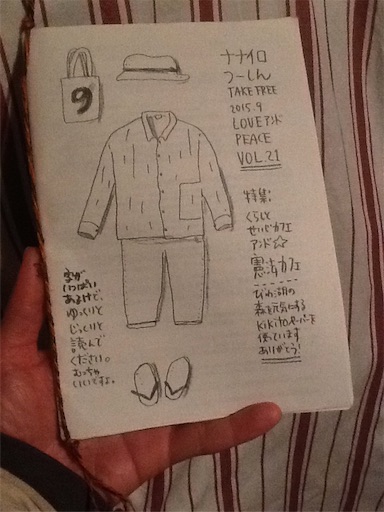 9
ナナイロ
つーしん
TAKE FREE
2015.9
LOVE アンド
PEACE
VOL.21
特集:
くらしと
せいじカフェ
アンド☆
憲法カフェ
びわ湖の
森を元気にする
kikitoペーパーを
使っています
ありがとう!
字が
いっぱい
あるけど、
ゆっくりと
じっくりと
読んで
ください。
むっちゃ
いいですよ。